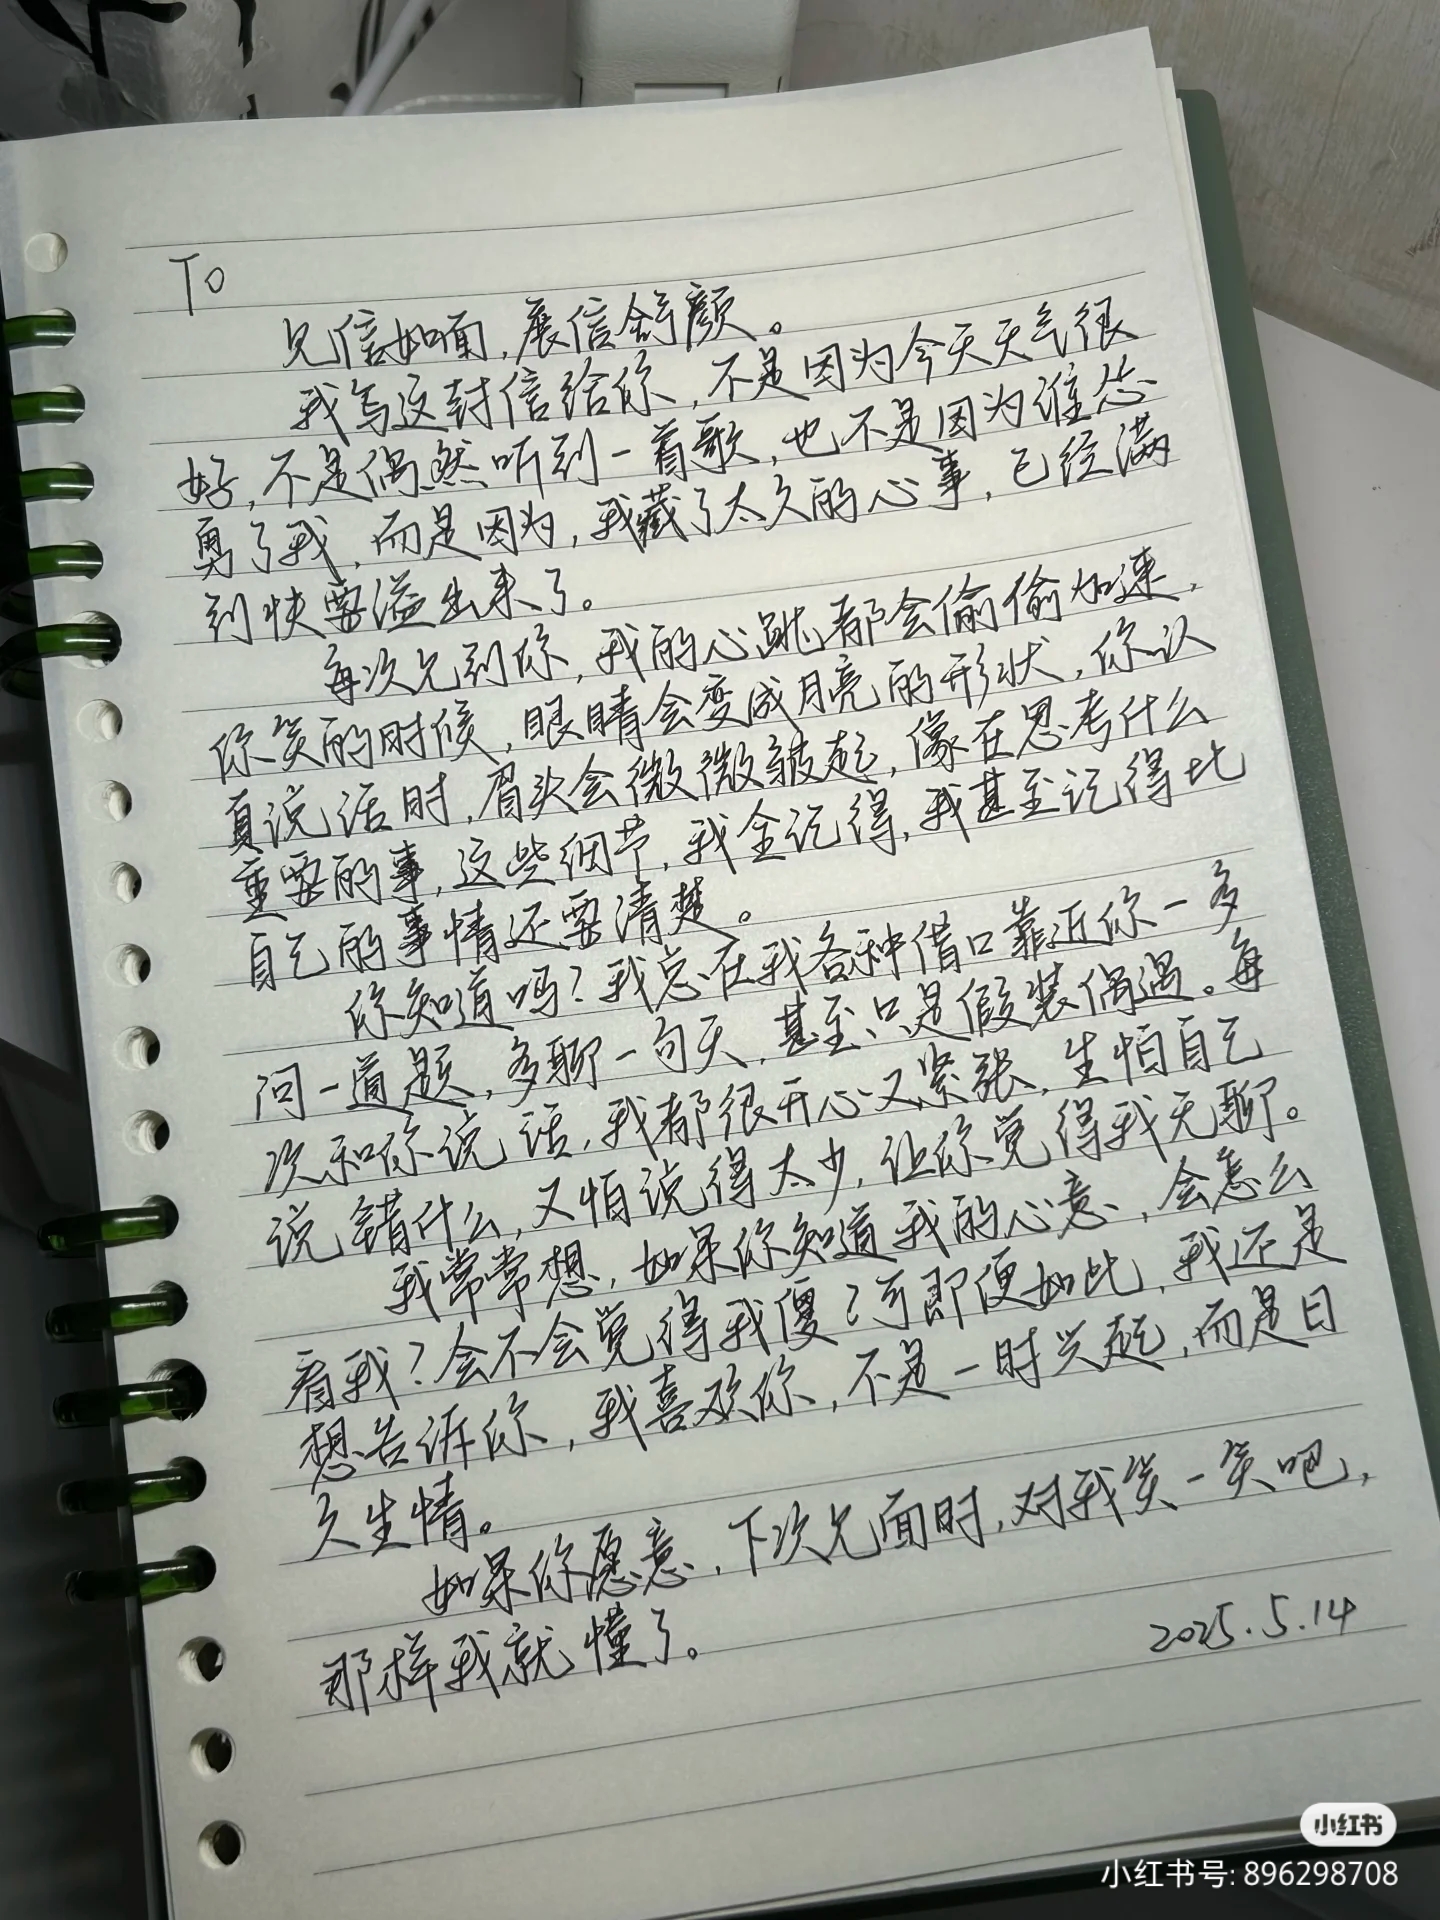 To
见信如面,展信舒颜。
我写这封信给你,不是因为今天天气很
好,不是偶然听到一首歌,也不是因为谁怂
勇了我,而是因为,我藏了太久的心事,已经满
到快要溢出来了。
每次见到你,我的心跳都会偷偷加速,
你笑的时候,眼睛会变成月亮的形状,你认
真说话时,眉头会微微皱起,像在思考什么
重要的事,这些细节,我全记得,我甚至记得比
自己的事情还要清楚。
你知道吗?我总在找各种借口靠近你一多
问一道题,多聊一句天,甚至只是假装偶遇。每
次和你说话,我都很开心又紧张,生怕自己
说错什么,又怕说得太少,让你觉得我无聊。
我常常想,如果你知道我的心意,会怎么
看我?会不会觉得我傻?可即便如此,我还是
想告诉你,我喜欢你,不是一时兴起,而是日
久生情。
如果你愿意,下次见面时,对我笑一笑吧,
那样我就懂了。
2025.5.14
小红书
小红书号: 896298708